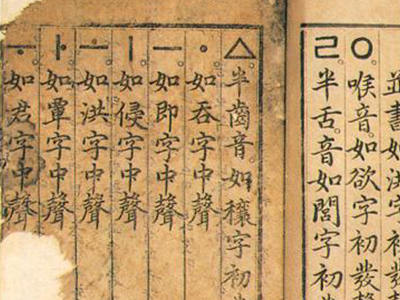 並書如洪字初發
ㅇ喉音如欲字初發聲
ㄹ半舌音如閭字初
ㅿ半齒音如穰字初
ㆍ如呑字中聲
ㅡ如即字中聲
ㅣ如侵字中聲
ㅗ如洪字中聲
ㅏ如覃字中聲
ㅜ如君字中聲